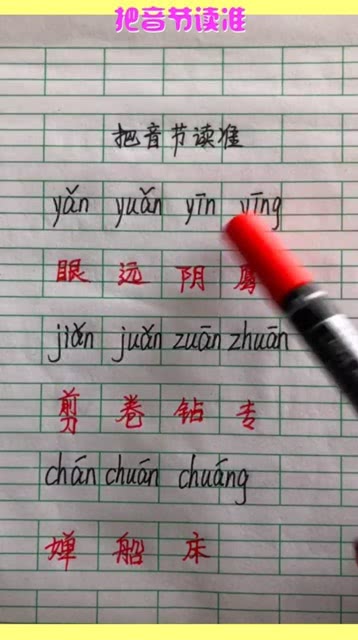 把音节读准
把音节读准
yǎn yuǎn yīn yīng
眼 远 阴
jiǎn juǎn zuān zhuān
剪 卷 钻 专
chán chuán chuáng
婵 船 床